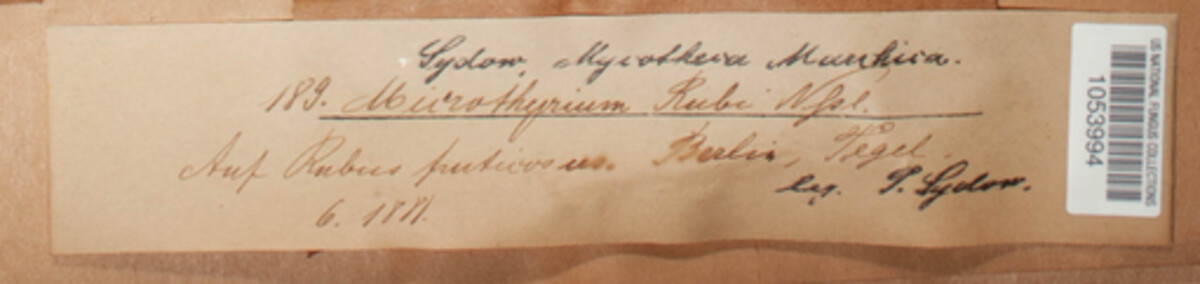 Sydow, Mycotheca Marchica.
189. Microthyrium Rubi Nssl.
Auf Rubus fruticosus. Berlin, Tegel.
leg. P. Sydow.
6. 1881.
US NATIONAL FUNGUS COLLECTIONS
1053994